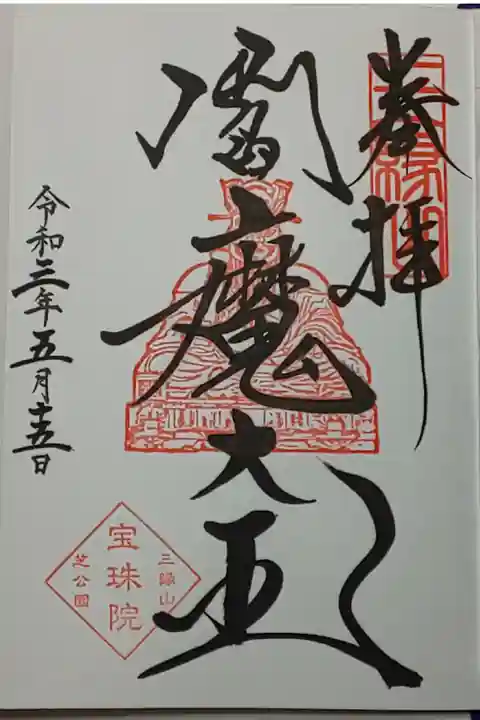 奉拝
三縁山
閻魔大王
令和三年五月十五日
三縁山
宝珠院
芝公園